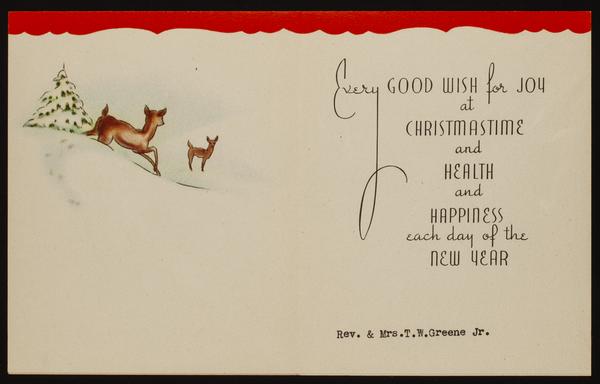 Every GOOD WISH for JOY
at
CHRISTMASTIME
and
HEALTH
and
HAPPINESS
each day of the
NEW YEAR
Rev. & Mrs.T.W.Greene Jr.